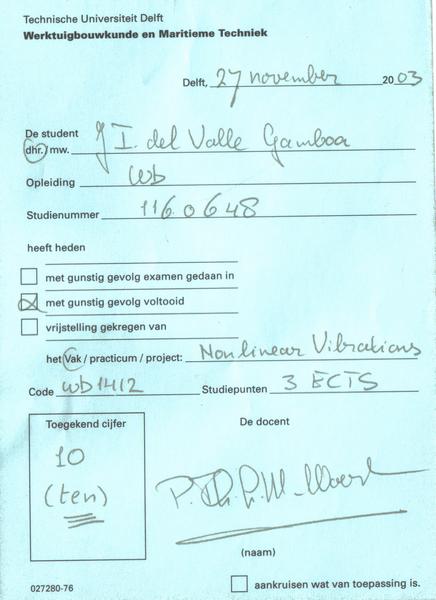 Technische Universiteit Delft
Werktuigbouwkunde en Maritieme Techniek
Delft, 27 november 2003
De student
dhr./mw. J I. del Valle Gamboa
Opleiding wb
Studienummer 1160648
heeft heden
met gunstig gevolg examen gedaan in
met gunstig gevolg voltooid
vrijstelling gekregen van
het Vak / practicum / project: Nonlinear Vibrations
Code wb1412 Studiepunten 3 ECTS
Toegekend cijfer De docent
10
(ten)
(naam)
027280-76 aankruisen wat van toepassing is.